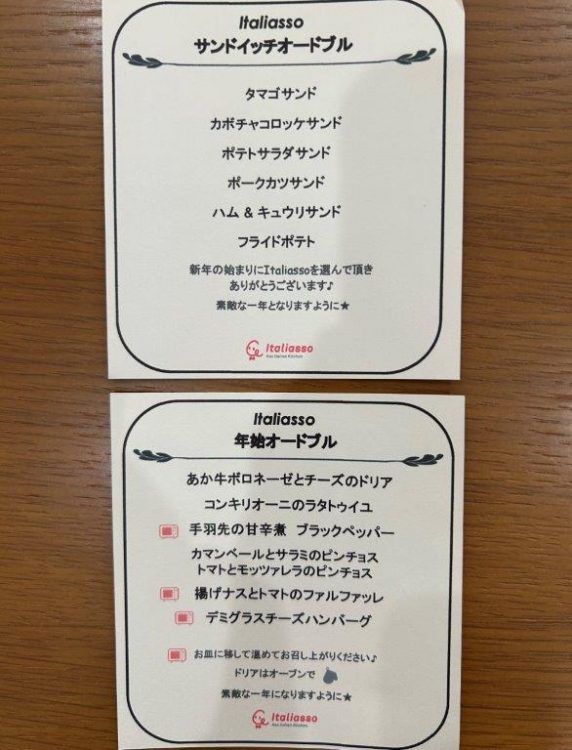 Italiasso
サンドイッチオードブル
タマゴサンド
カボチャコロッケサンド
ポテトサラダサンド
ポークカツサンド
ハム & キュウリサンド
フライドポテト
新年の始まりにItaliassoを選んで頂き
ありがとうございます♪
素敵な一年となりますように★
Italiasso
Italiasso
年始オードブル
あか牛ボロネーゼとチーズのドリア
コンキリオーニのラタトゥイユ
手羽先の甘辛煮 ブラックペッパー
カマンベールとサラミのピンチョス
トマトとモッツァレラのピンチョス
揚げナスとトマトのファルファッレ
デミグラスチーズハンバーグ
お皿に移して温めてお召し上がりください♪
ドリアはオーブンで
素敵な一年になりますように★
Italiasso